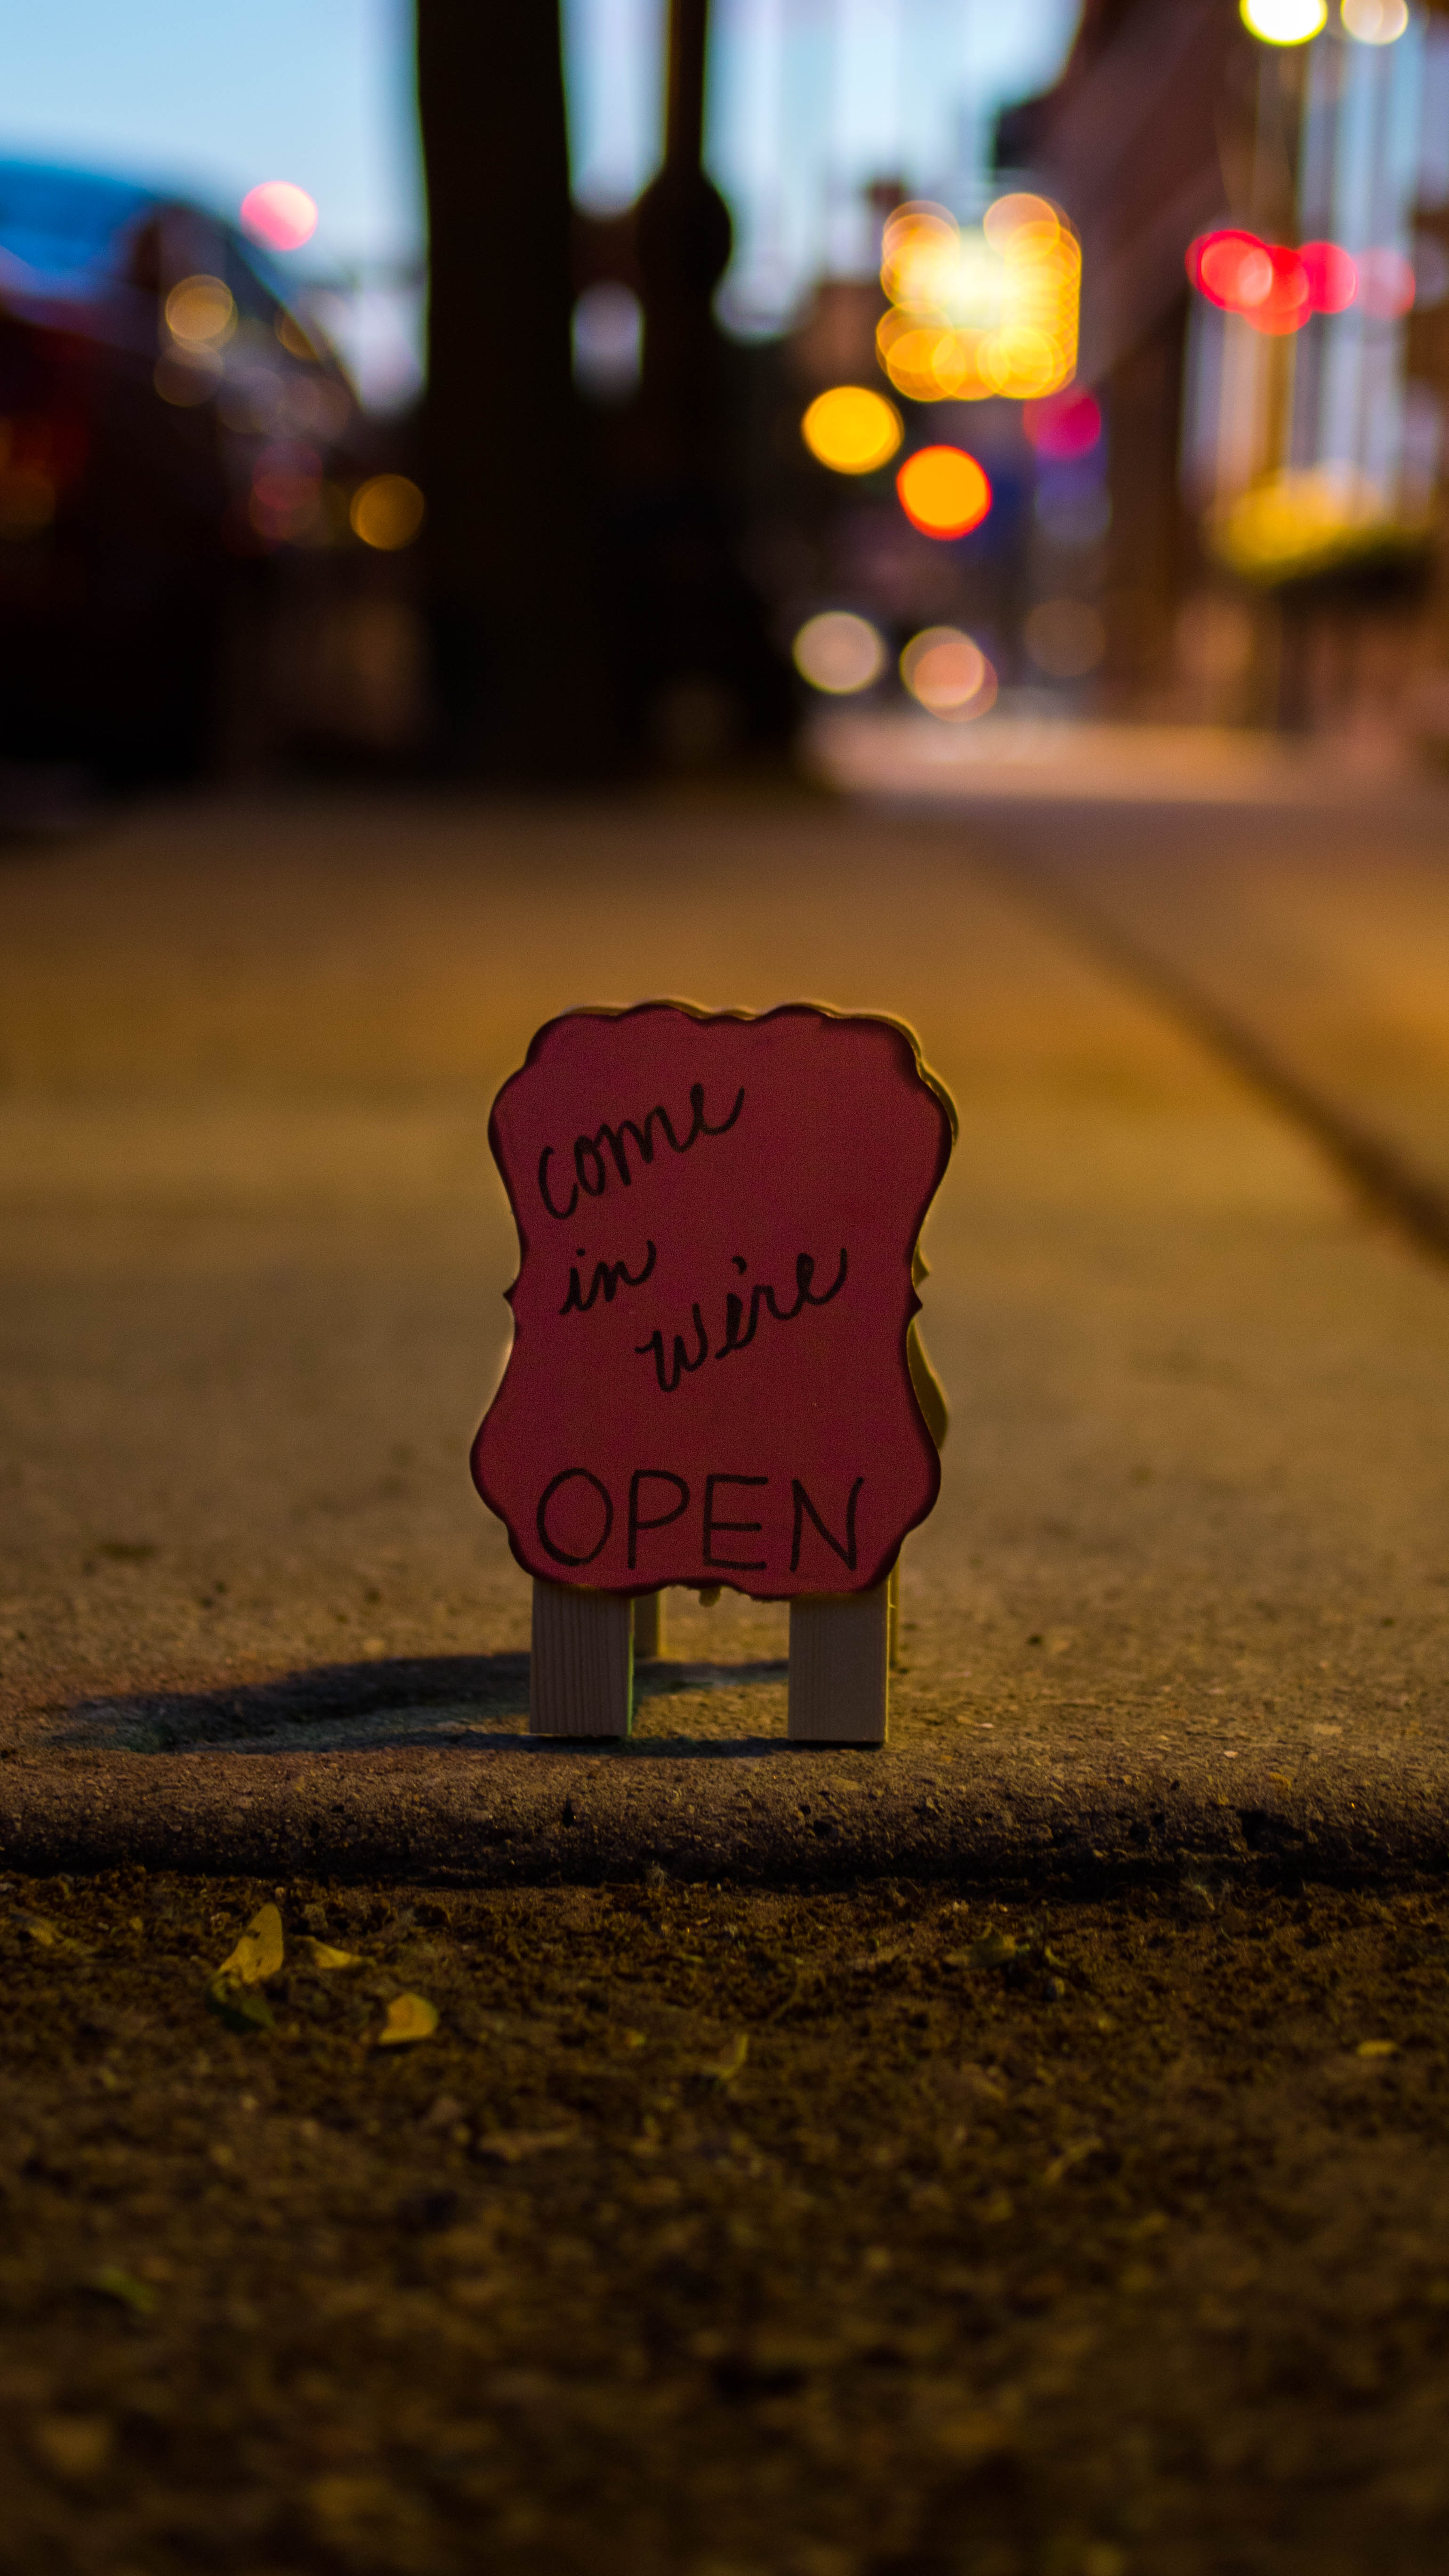 come
in we're
OPEN